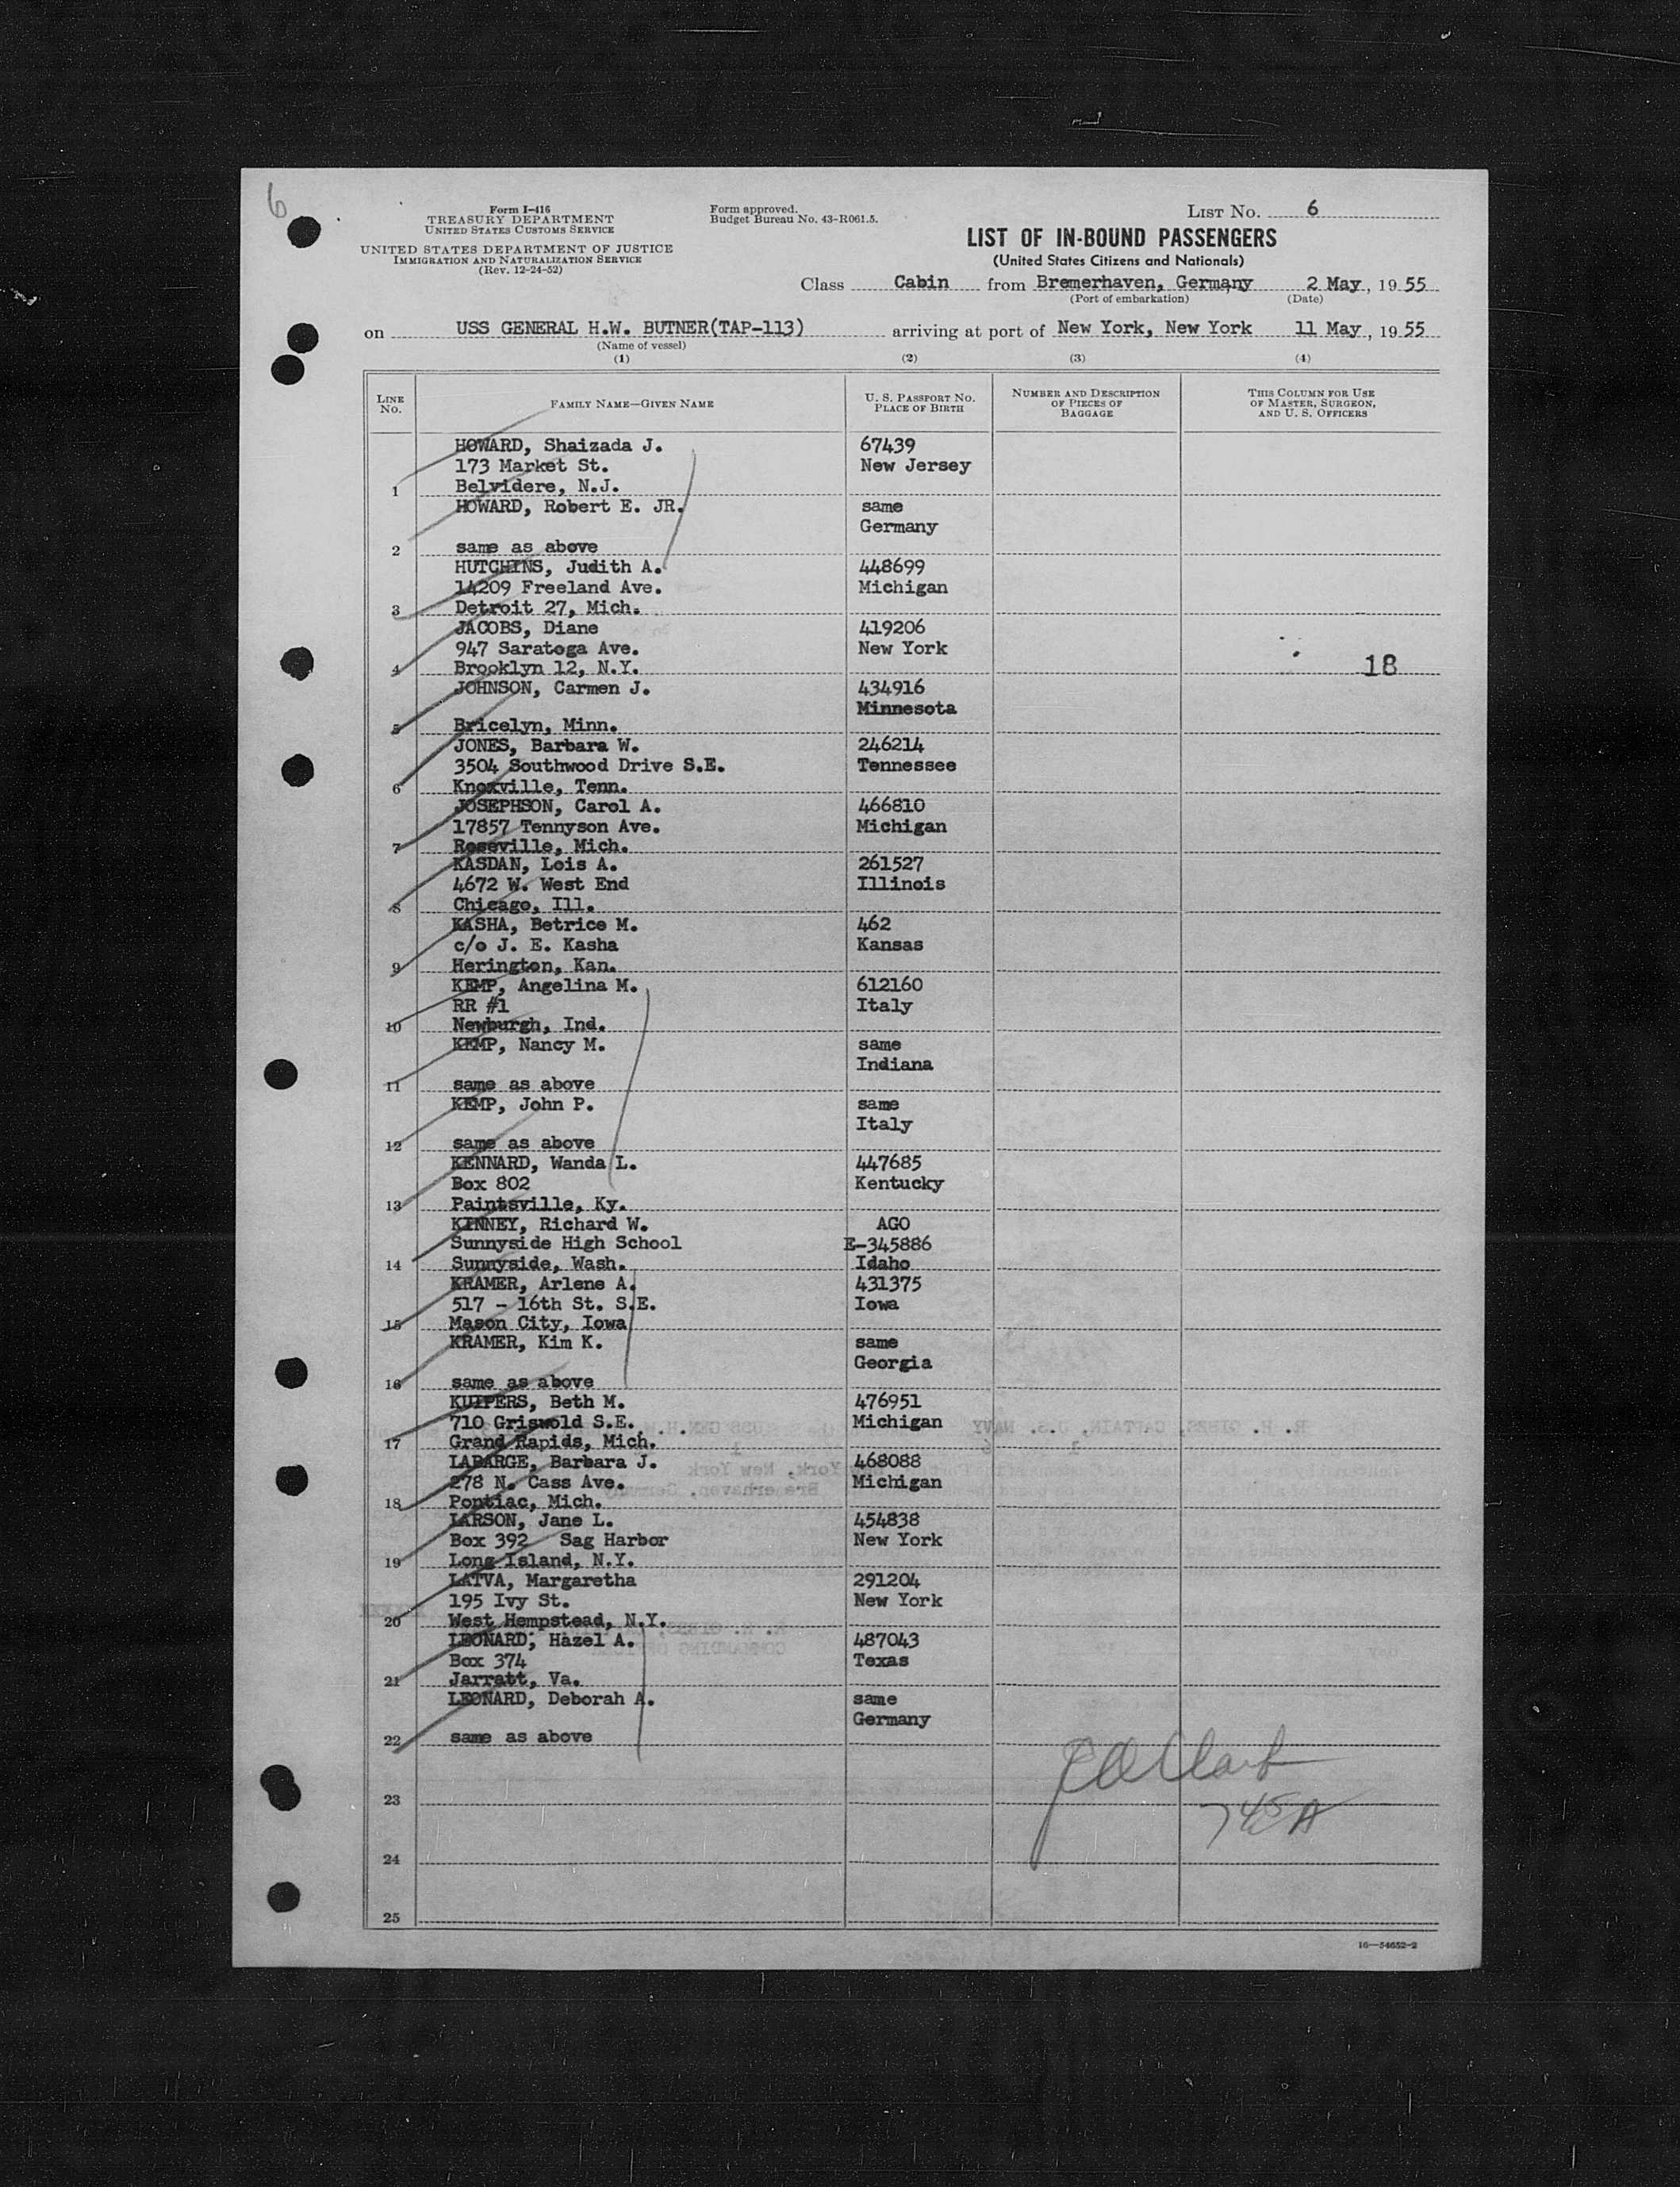 6
Form I-416
TREASURY DEPARTMENT
UNITED STATES CUSTOMS SERVICE
UNITED STATES DEPARTMENT OF JUSTICE
IMMIGRATION AND NATURALIZATION SERVICE
(Rev. 12-24-52)
Form approved.
Budget Bureau No. 43-R061.5.
LIST NO. 6
LIST OF IN-BOUND PASSENGERS
(United States Citizens and Nationals)
Class Cabin from Bremerhaven, Germany 2 May, 19 55
(Port of embarkation) (Date)
on USS GENERAL H.W. BUTNER(TAP-113) arriving at port of New York, New York 11 May, 19 55
(Name of vessel)
(1) (2) (3) (4)
LINE NO.
FAMILY NAME—GIVEN NAME
U. S. PASSPORT NO.
PLACE OF BIRTH
NUMBER AND DESCRIPTION
OF PIECES OF
BAGGAGE
THIS COLUMN FOR USE
OF MASTER, SURGEON,
AND U. S. OFFICERS
HOWARD, Shaizada J. 67439
173 Market St. New Jersey
1 Belvidere, N.J.
HOWARD, Robert E. JR. same
Germany
2 same as above
HUTCHINS, Judith A. 448699
14209 Freeland Ave. Michigan
3 Detroit 27, Mich.
JACOBS, Diane 419206
947 Saratoga Ave. New York
4 Brooklyn 12, N.Y. 18
JOHNSON, Carmen J. 434916
Minnesota
5 Bricelyn, Minn.
JONES, Barbara W. 246214
3504 Southwood Drive S.E. Tennessee
6 Knoxville, Tenn.
JOSEPHSON, Carol A. 466810
17857 Tennyson Ave. Michigan
7 Roseville, Mich.
KASDAN, Lois A. 261527
4672 W. West End Illinois
8 Chicago, Ill.
KASHA, Betrice M. 462
c/o J. E. Kasha Kansas
9 Herington, Kan.
KEMP, Angelina M. 612160
RR #1 Italy
10 Newburgh, Ind.
KEMP, Nancy M. same
Indiana
11 same as above
KEMP, John P. same
Italy
12 same as above
KENNARD, Wanda L. 447685
Box 802 Kentucky
13 Paintsville, Ky.
KINNEY, Richard W. AGO
Sunnyside High School E-345886
14 Sunnyside, Wash. Idaho
KRAMER, Arlene A. 431375
517 - 16th St. S.E. Iowa
15 Mason City, Iowa
KRAMER, Kim K. same
Georgia
16 same as above
KUIPERS, Beth M. 476951
710 Griswold S.E. Michigan
17 Grand Rapids, Mich.
LABARGE, Barbara J. 468088
278 N. Cass Ave. Michigan
18 Pontiac, Mich.
LARSON, Jane L. 454838
Box 392 Sag Harbor New York
19 Long Island, N.Y.
LATVA, Margaretha 291204
195 Ivy St. New York
20 West Hempstead, N.Y.
LEONARD, Hazel A. 487043
Box 374 Texas
21 Jarratt, Va.
LEONARD, Deborah A. same
Germany
22 same as above
23
745A
24
25
16—54652-2